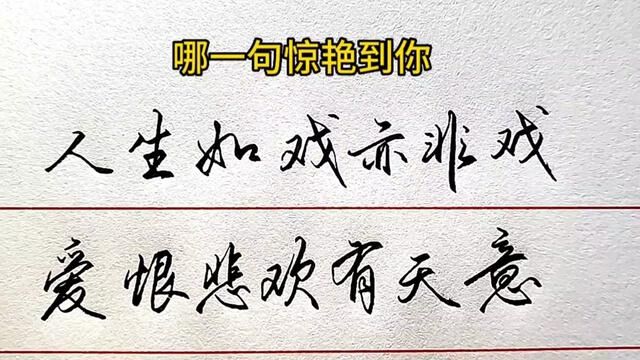 哪一句惊艳到你
人生如戏亦非戏
爱恨悲欢有天意